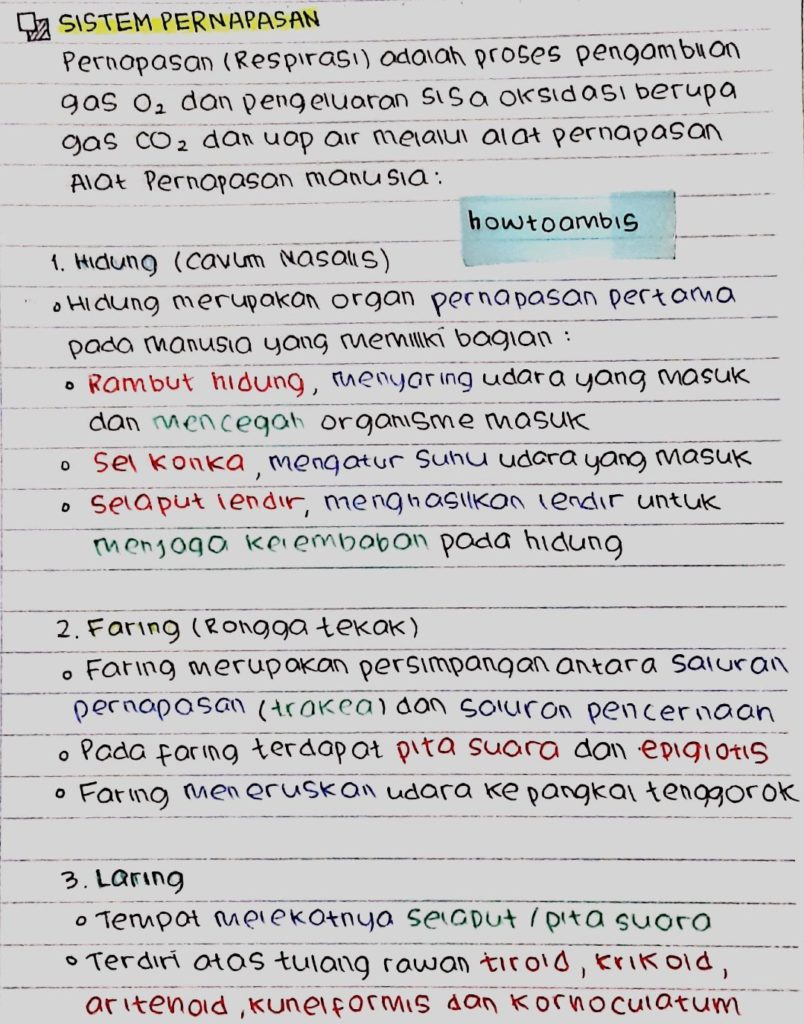 SISTEM PERNAPASAN
Pernapasan (Respirasi) adalah proses pengambilan
gas O₂ dan pengeluaran sisa oksidasi berupa
gas CO₂ dan uap air melalui alat pernapasan
Alat Pernapasan manusia:
howtoambis
1. Hidung (Cavum Nasalis)
• Hidung merupakan organ pernapasan pertama
pada manusia yang memiliki bagian :
• Rambut hidung, menyaring udara yang masuk
dan mencegah organisme masuk
• Sel konka, mengatur suhu udara yang masuk
• Selaput lendir, menghasilkan lendir untuk
menjaga kelembaban pada hidung
2. Faring (Rongga tekak)
• Faring merupakan persimpangan antara saluran
pernapasan (trakea) dan saluran pencernaan
• Pada faring terdapat pita suara dan epiglotis
• Faring meneruskan udara ke pangkal tenggorok
3. Laring
• Tempat melekatnya selaput / pita suara
• Terdiri atas tulang rawan tiroid, krikoid,
aritenoid, kuneiformis dan kornoculatum